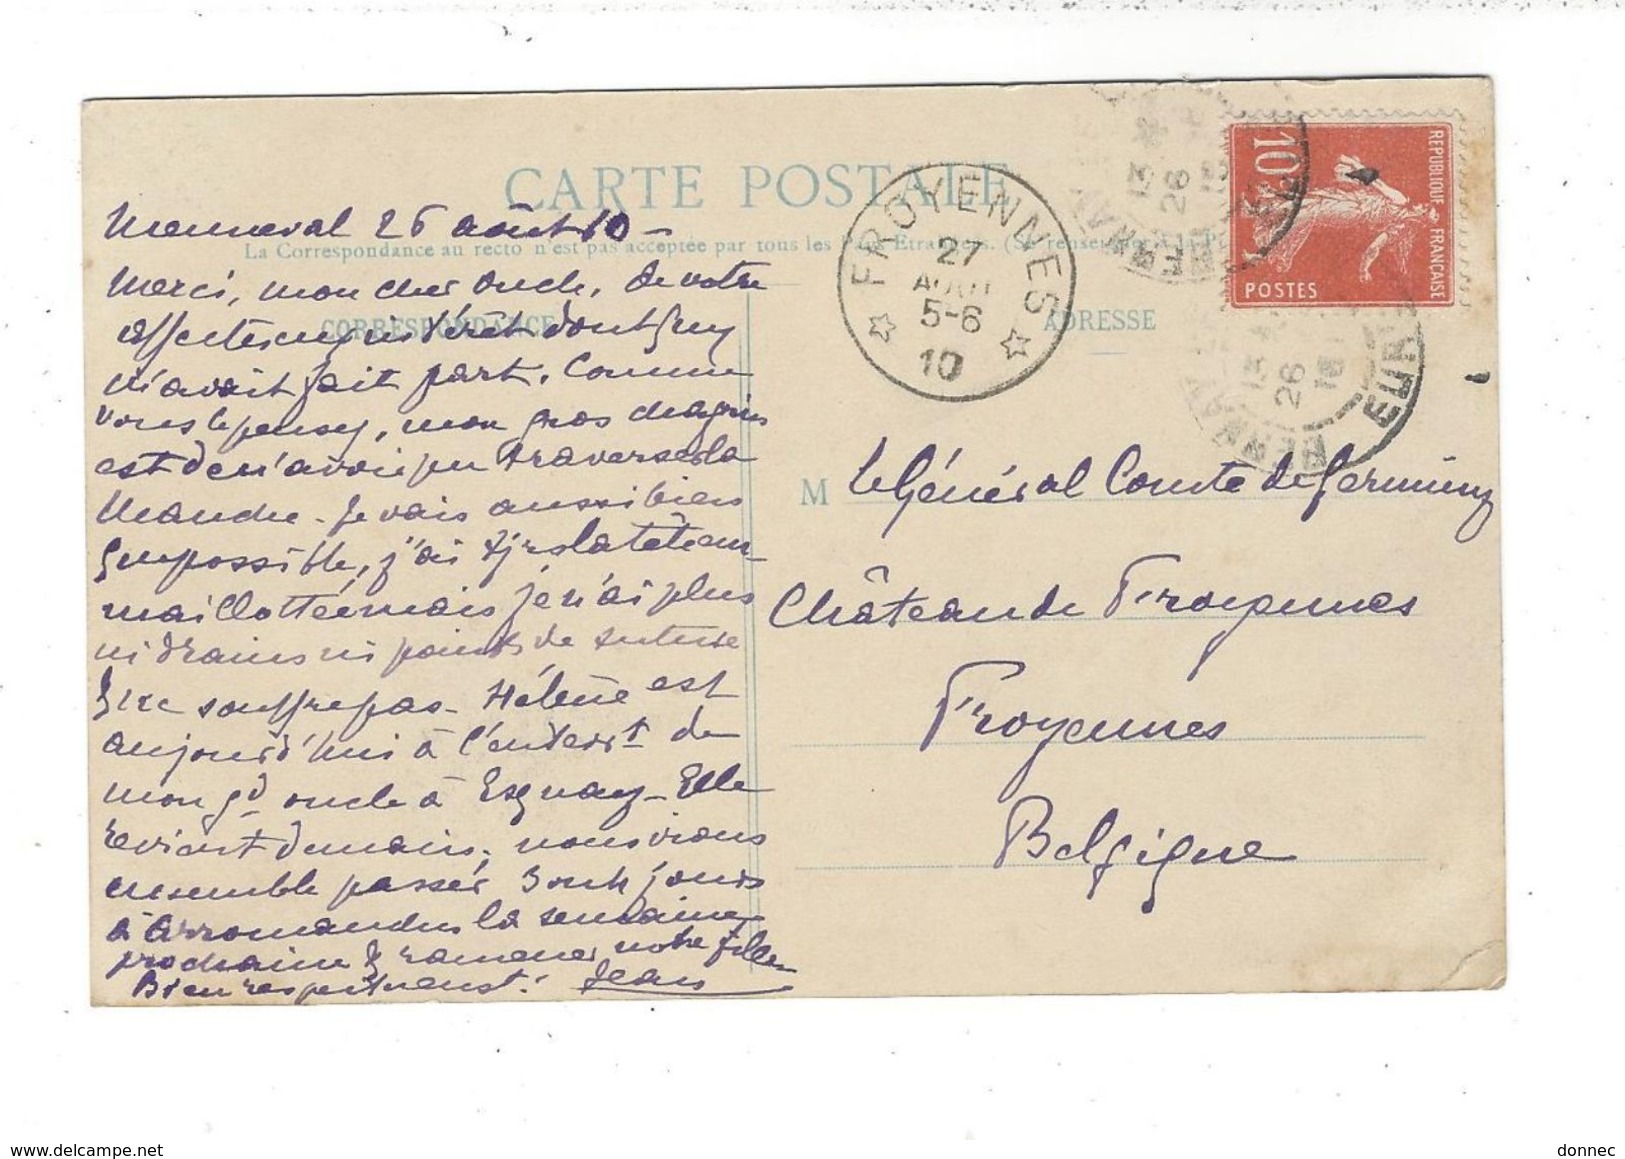 CARTE POSTALE
La Correspondance au recto n'est pas acceptée par tous les Pays Étrangers. (Se renseigner à la
CORRESPONDANCE
ADRESSE
Menneval 26 août 10 -
Merci, mon cher oncle, de votre
affectueux intérêt dont Guy
m'avait fait part. Comme
vous le pensez, mon gros chagrin
est de n'avoir pu traverser la
Manche. Je vais aussi bien
que possible, j'ai tjrs la tête em-
maillottée mais je n'ai plus
ni drains ni points de suture
& ne souffre pas. Hélène est
aujourd'hui à l'enterrt de
mon gd oncle à Esquay. Elle
revient demain, nous irons
ensemble passer 3 ou 4 jours
à Arromanches la semaine
prochaine & ramener notre fille.
Bien respectueust. Jean
M le Général Comte de Germiny
Château de Froyennes
Froyennes
Belgique
FROYENNES
27
AOUT
5-6
10
REPUBLIQUE FRANÇAISE
10
POSTES
13
26
EURE
13
26
BERNAY
EURE
www.delcampe.net
donnec